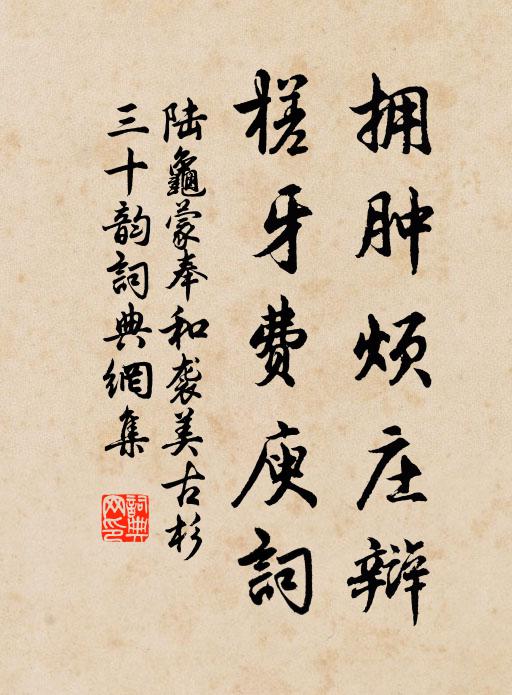 拥肿烦庄辩
槎牙费庾詞
陆龜蒙奉和袭美古杉
三十韵詞典網集
詞典
网印